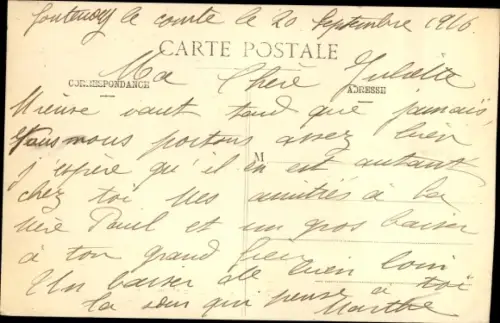 Fontenoy le comte le 20 Septembre 1916
CARTE POSTALE
Ma Chère Juliette
CORRESPONDANCE
ADRESSE
Mieuse vaut tard que jamais,
Nous nous portons assez bien
M
j'espère qu'il en est autant
chez toi mes amitiés à la
mère Paul et un gros baiser
à ton grand
Un baiser de bien loin
la sœur qui pense à toi
Marthe